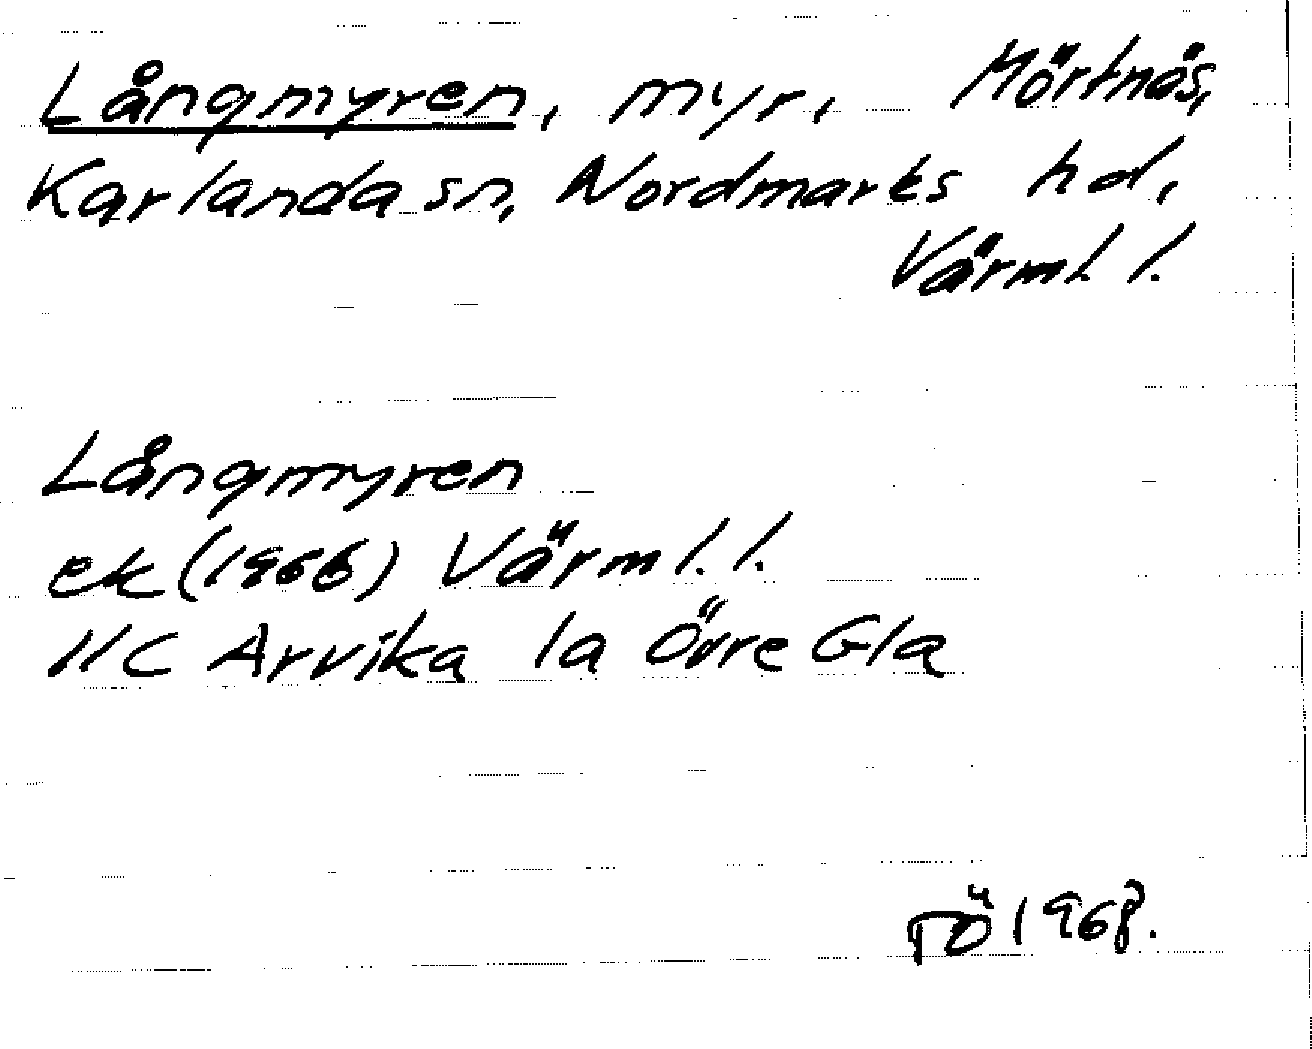 Långmyren, myr, Mörtnäs,
Karlanda sn, Nordmarks hd,
Värml. l.
Långmyren
ek (1966) Värml. l.
11C Arvika 1a Övre Gla
TÖ 1968.